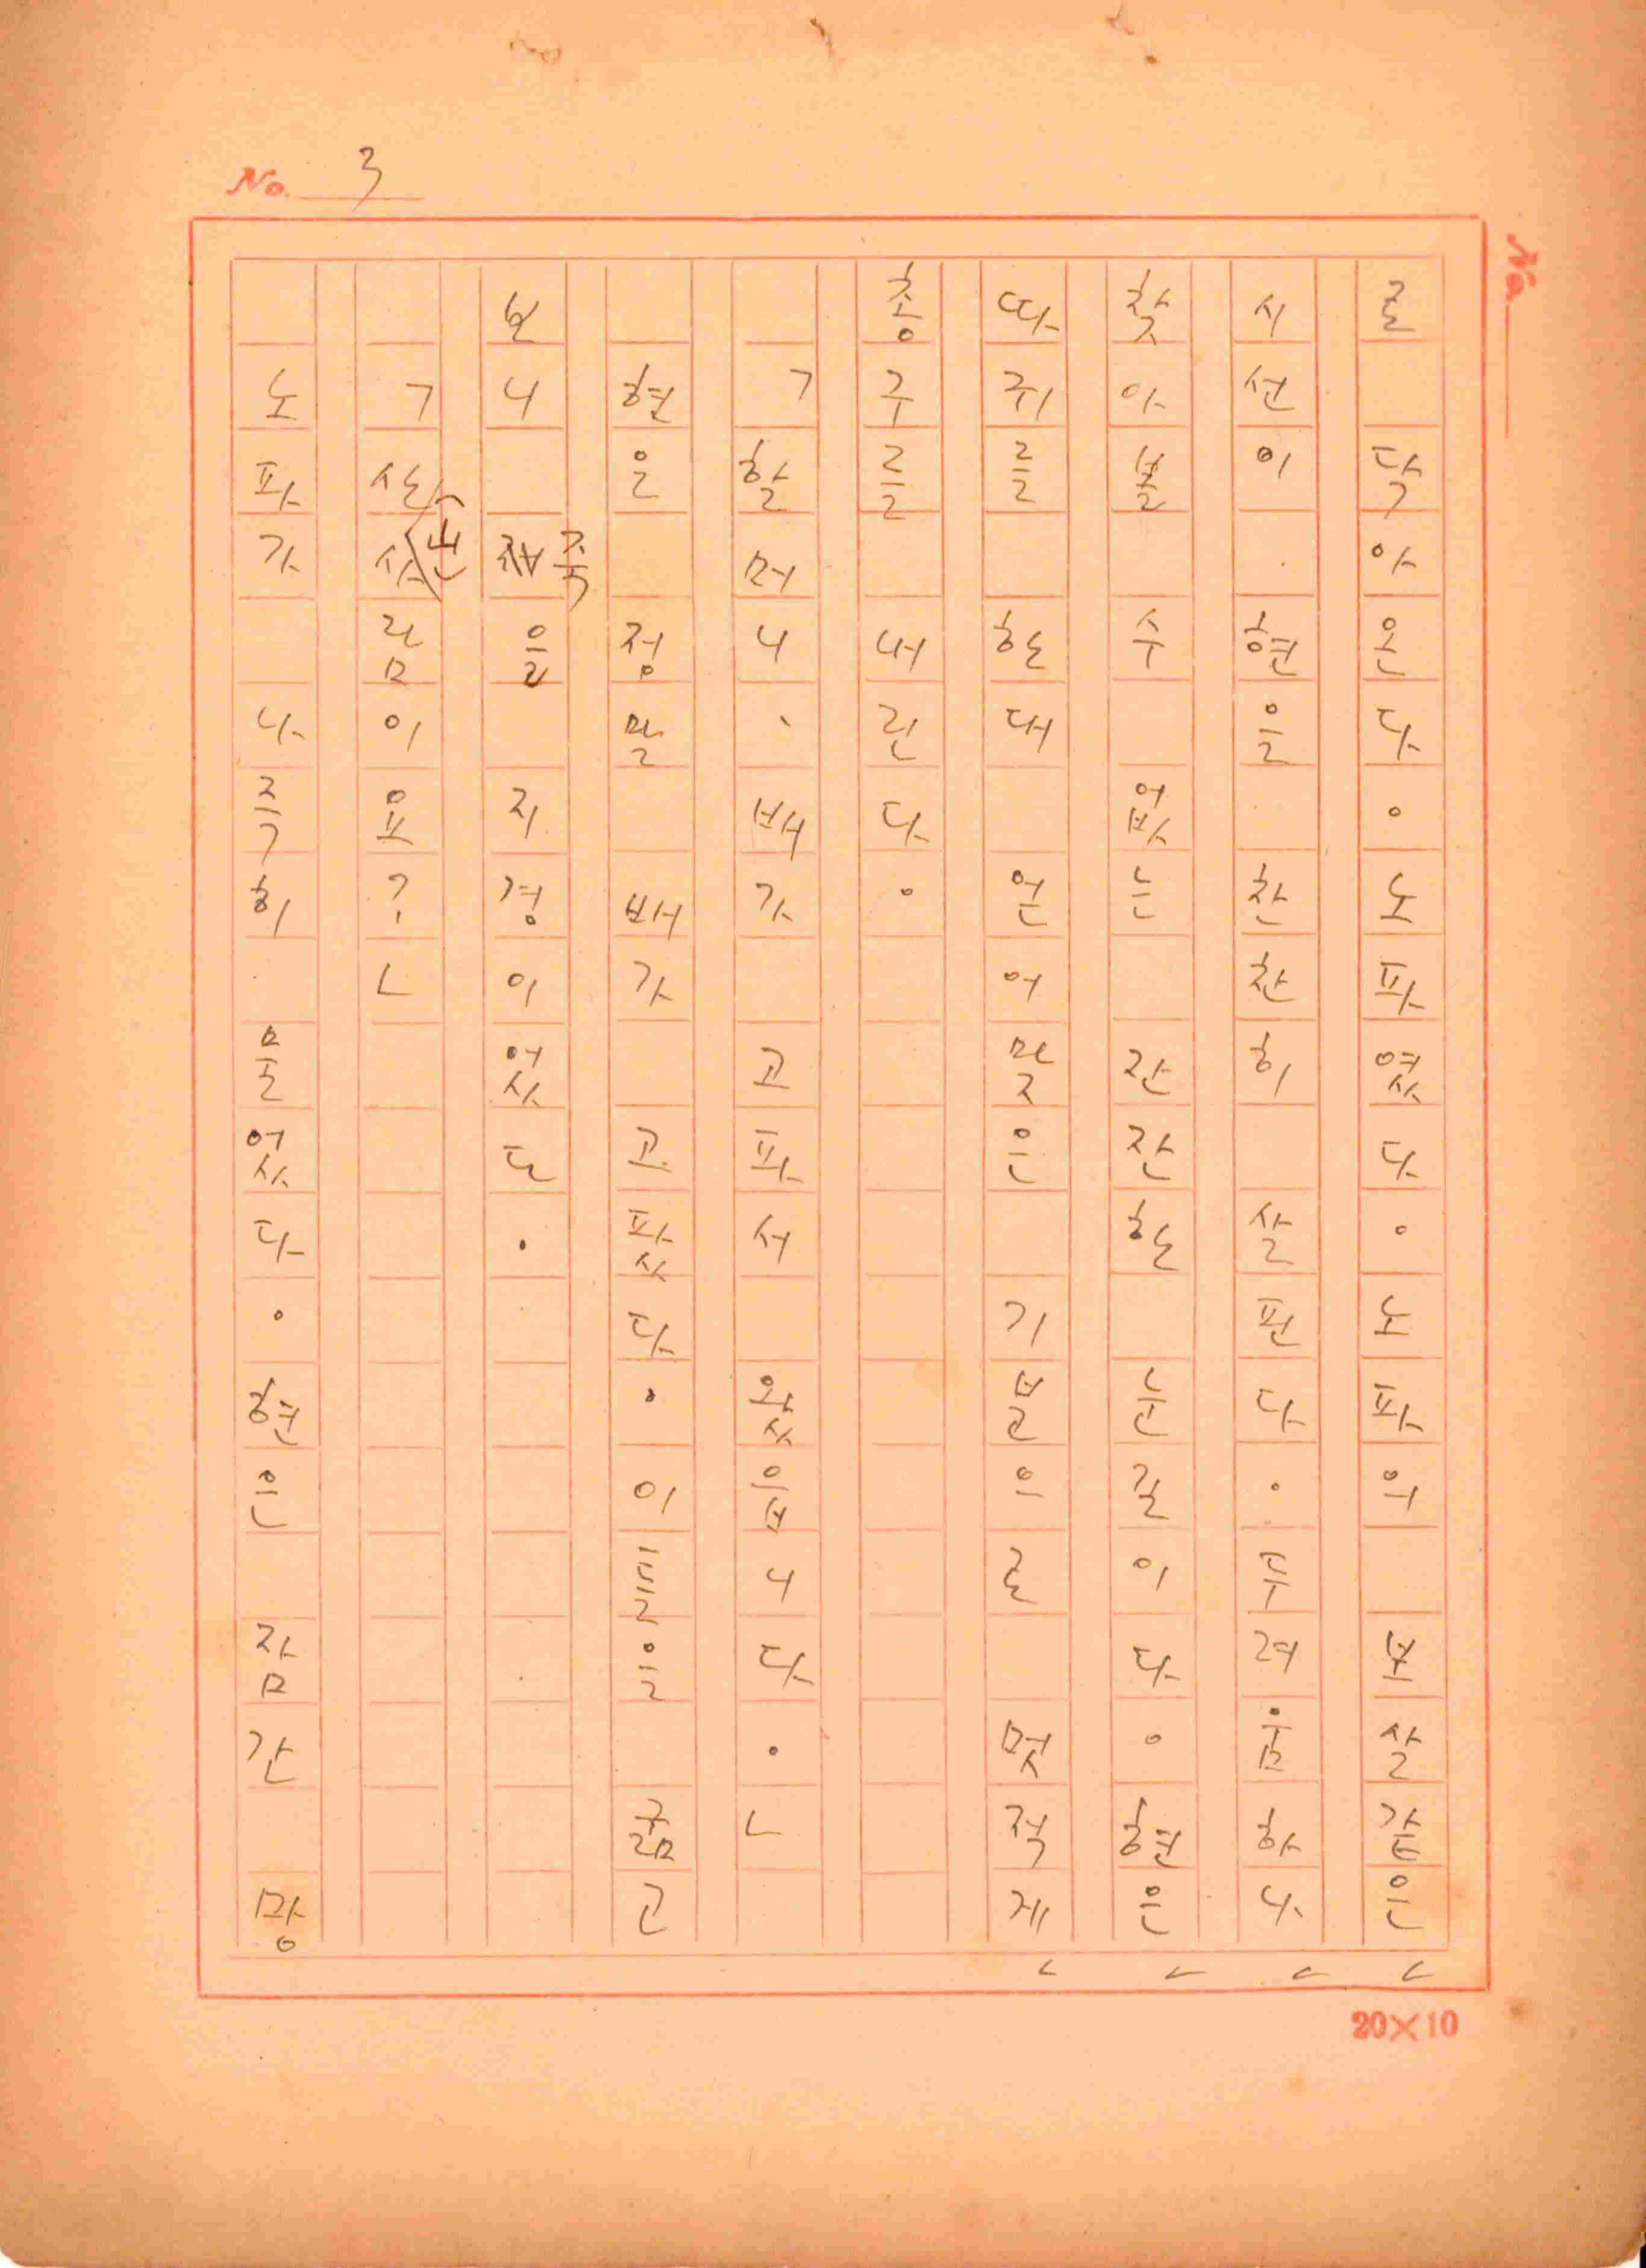 No. 3
No.
로 닥아온다。노파였다。노파의 보살같은
시선이 현을 찬찬히 살핀다。두려움하나
찾아볼 수 없는 잔잔한 눈길이다。현은
따귀를 한대 얻어맞은 기분으로 멋적게
총구를 내린다。
「할머니、배가 고파서 왔읍니다。」
현은 정말 배가 고팠다。이틀을 굶고
보니 죽을 지경이었다.
「산사람이요?」
노파가 나즉히 물었다。현은 잠간 망
20×10